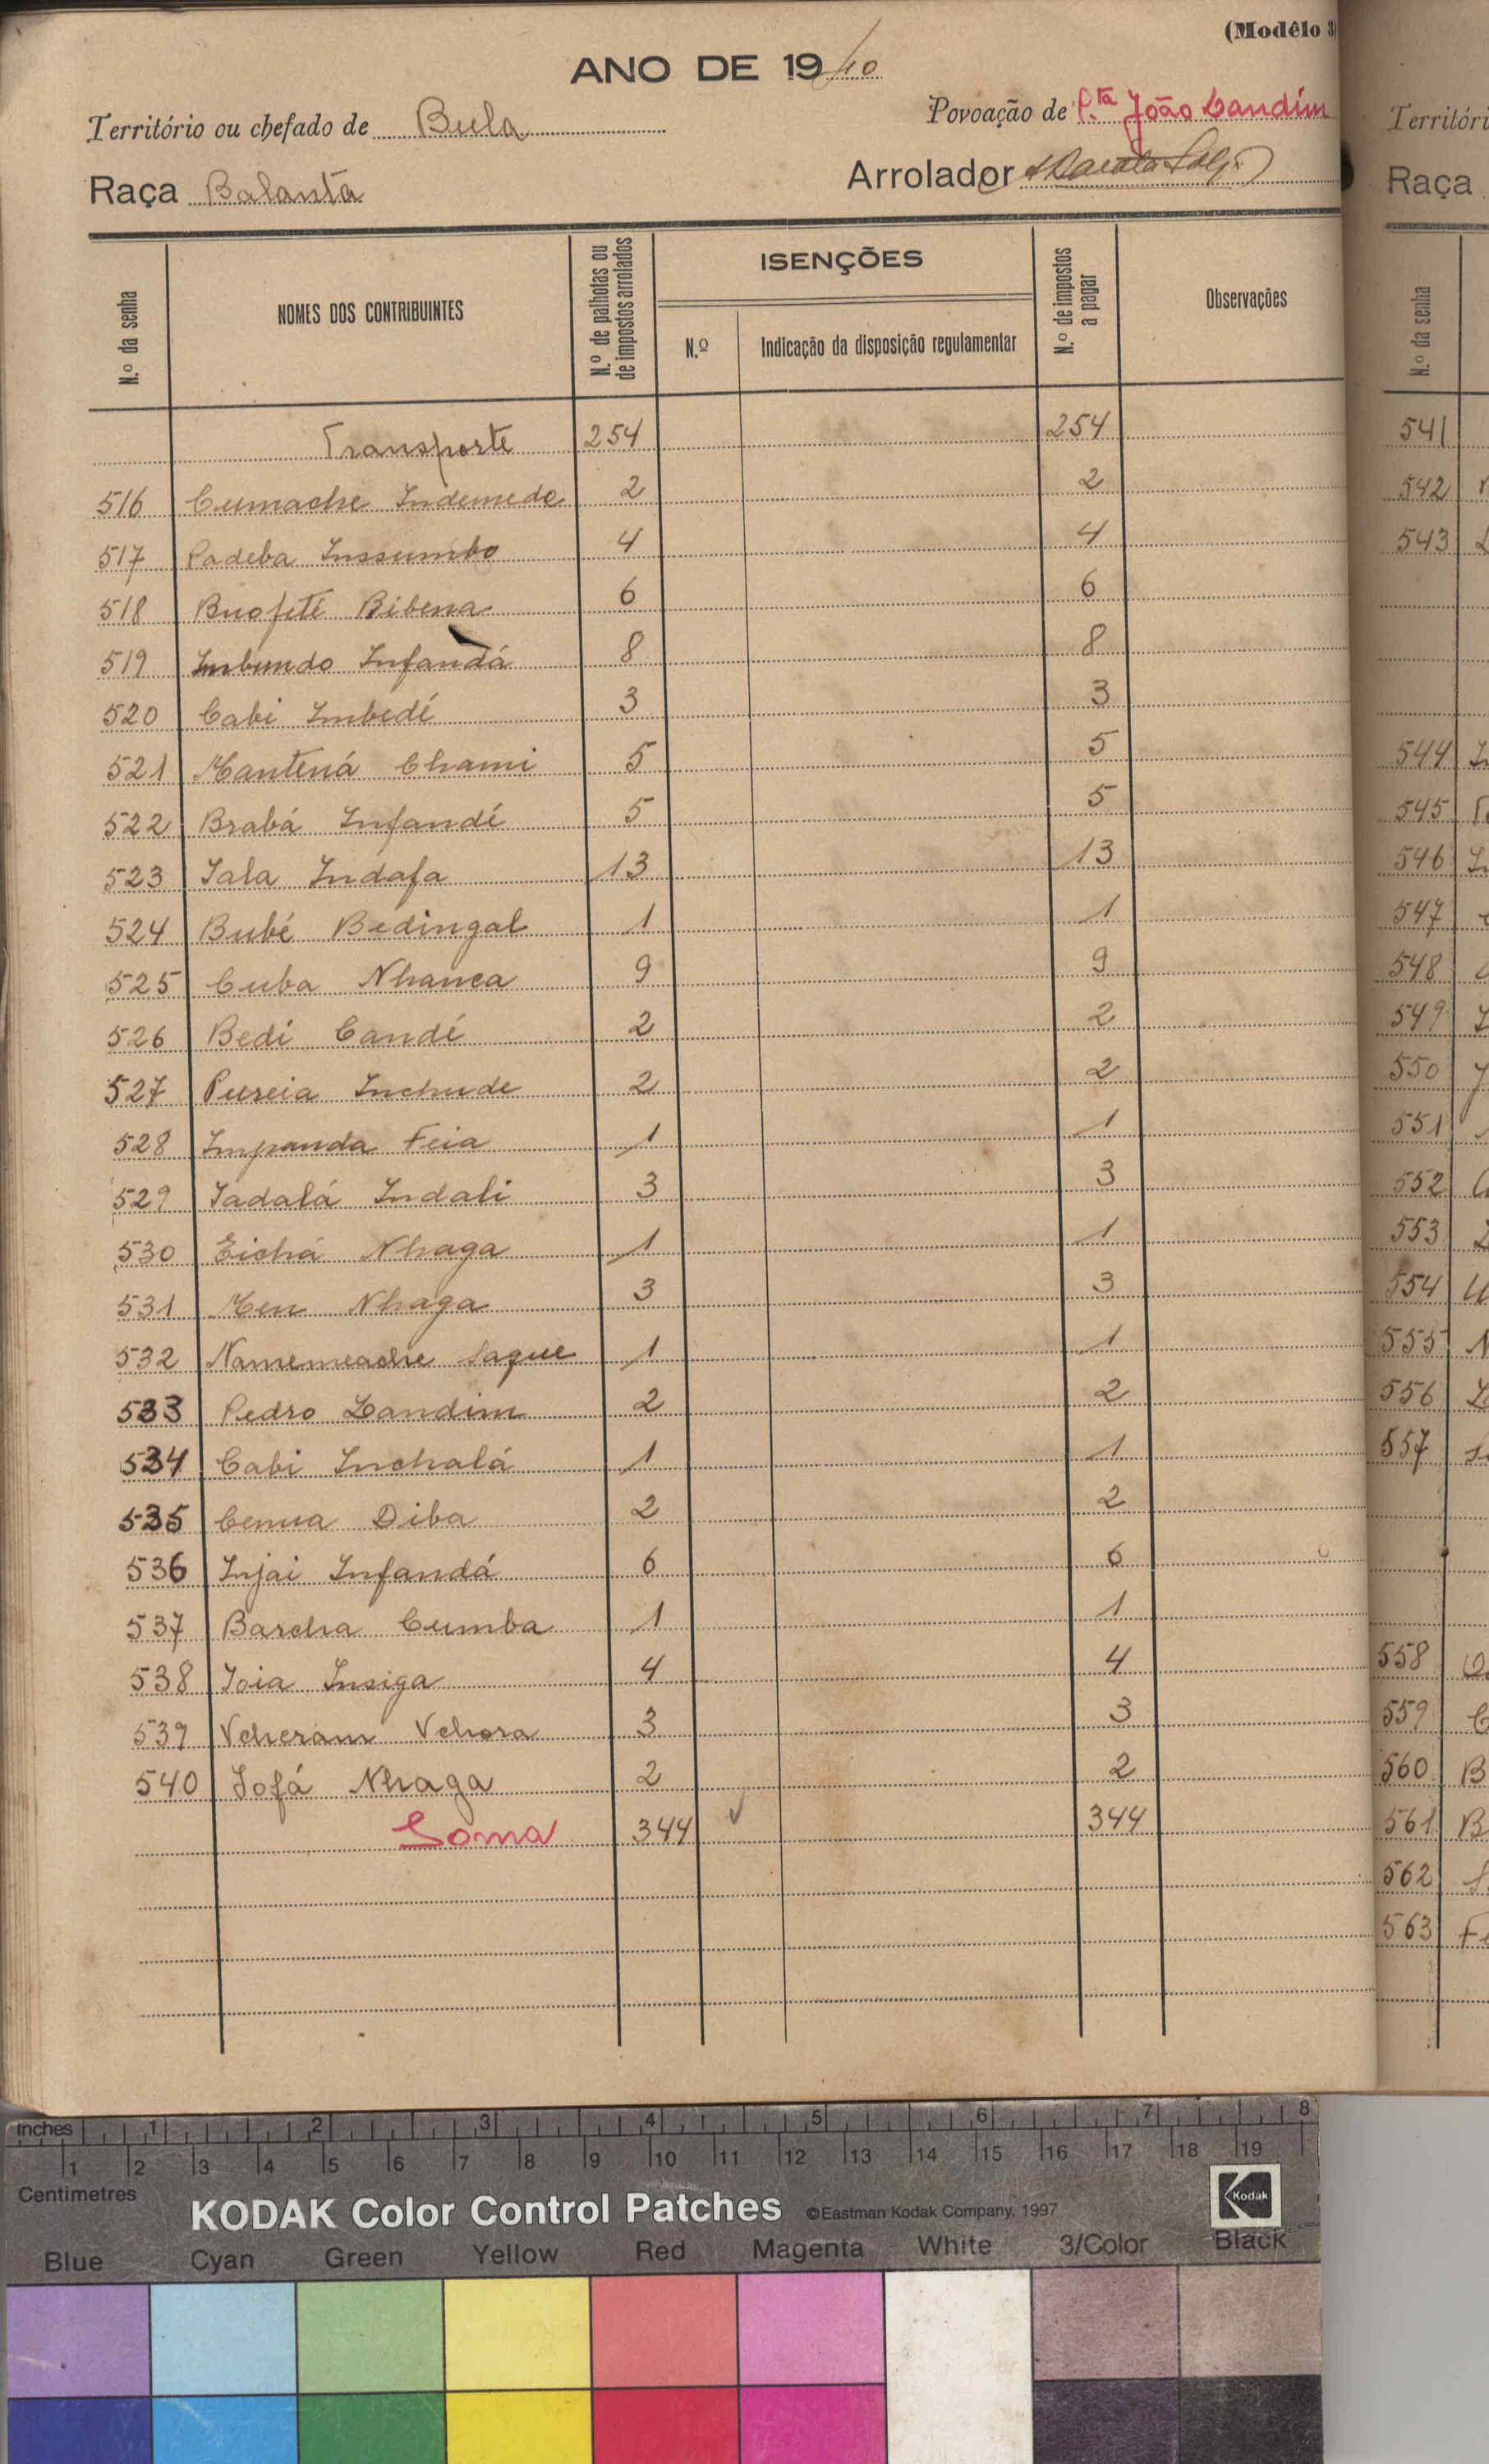 (Modêlo 3
ANO DE 1940
Território ou chefado de Bula
Povoação de P.ta João Landim
Raça Balanta
Arrolador
N.º da senha
NOMES DOS CONTRIBUINTES
N.º de palhotas ou de impostos arrolados
ISENÇÕES
N.º
Indicação da disposição regulamentar
N.º de impostos a pagar
Observações
Transporte 254 254
516 Cumache Indemede 2 2
517 Padeba Inssumbo 4 4
518 Buofeté Bibena 6 6
519 Imbundo Infandá 8 8
520 Cabi Imbedé 3 3
521 Mantená Chami 5 5
522 Brabá Infandé 5 5
523 Jala Indafa 13 13
524 Bubé Bedingal 1 1
525 Cuba Nhanca 9 9
526 Bedi Candé 2 2
527 Pureia Inchude 2 2
528 Impanda Feia 1 1
529 Jadalá Indali 3 3
530 Eichá Nhaga 1 1
531 Men Nhaga 3 3
532 Namemeache Saque 1 1
533 Pedro Landim 2 2
534 Cabi Inchalá 1 1
535 Cenua Diba 2 2
536 Injai Infandá 6 6
537 Barcha Cumba 1 1
538 Joia Insiga 4 4
539 Vcheram Vchora 3 3
540 Jofá Nhaga 2 2
Soma 344 344
Territóri
Raça
N.º da senha
541
542
543
544
545
546
547
548
549
550
551
552
553
554
555
556
557
558
559
560
561
562
563
Inches 1 2 3 4 5 6 7 8
1 2 3 4 5 6 7 8 9 10 11 12 13 14 15 16 17 18 19
Centimetres
KODAK Color Control Patches ©Eastman Kodak Company, 1997
Kodak
Blue Cyan Green Yellow Red Magenta White 3/Color Black